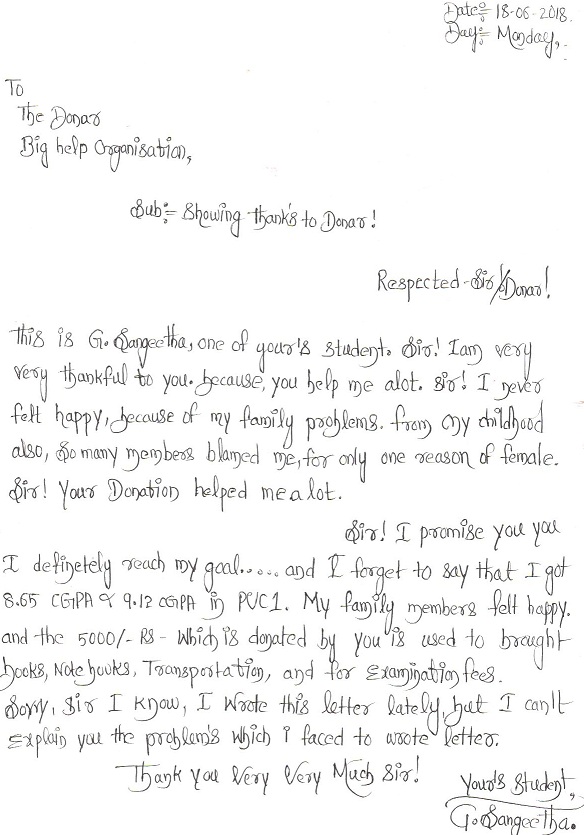 Date:- 18-06-2018.
Day:- Monday,.
To
The Donar
Big help Organisation,
Sub:- Showing thank's to Donar!
Respected Sir/Donar!
This is G. Sangeetha, one of your's student. Sir! Iam very
very thankful to you. because, you help me alot. Sir! I never
felt happy, because of my family problems. from my childhood
also, So many members blamed me, for only one reason of female.
Sir! Your Donation helped me a lot.
Sir! I promise you you
I definetely reach my goal..... and I forget to say that I got
8.65 CGPA & 9.12 CGPA in PUC1. My family members felt happy.
and the 5000/- Rs - Which is donated by you is used to brought
books, Note books, Transportation, and for Examination fees.
Sorry, Sir I know, I wrote this letter lately, but I can't
Explain you the problem's which i faced to wrote letter.
Thank you Very Very Much Sir!
Your's Student,
G. Sangeetha.